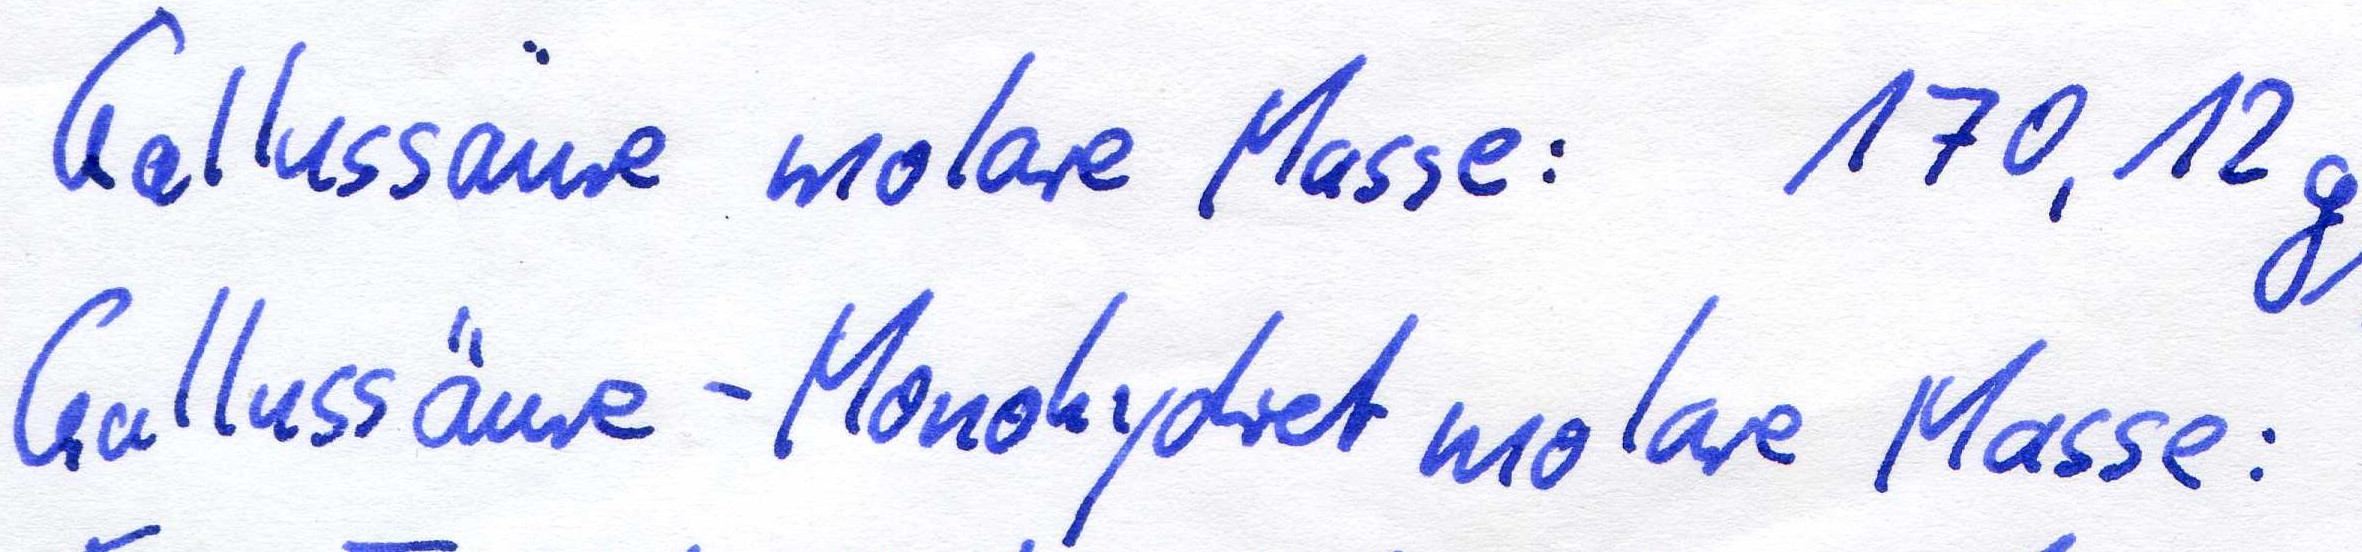 Gallussäure molare Masse: 170,12 g/
Gallussäure-Monohydrat molare Masse: